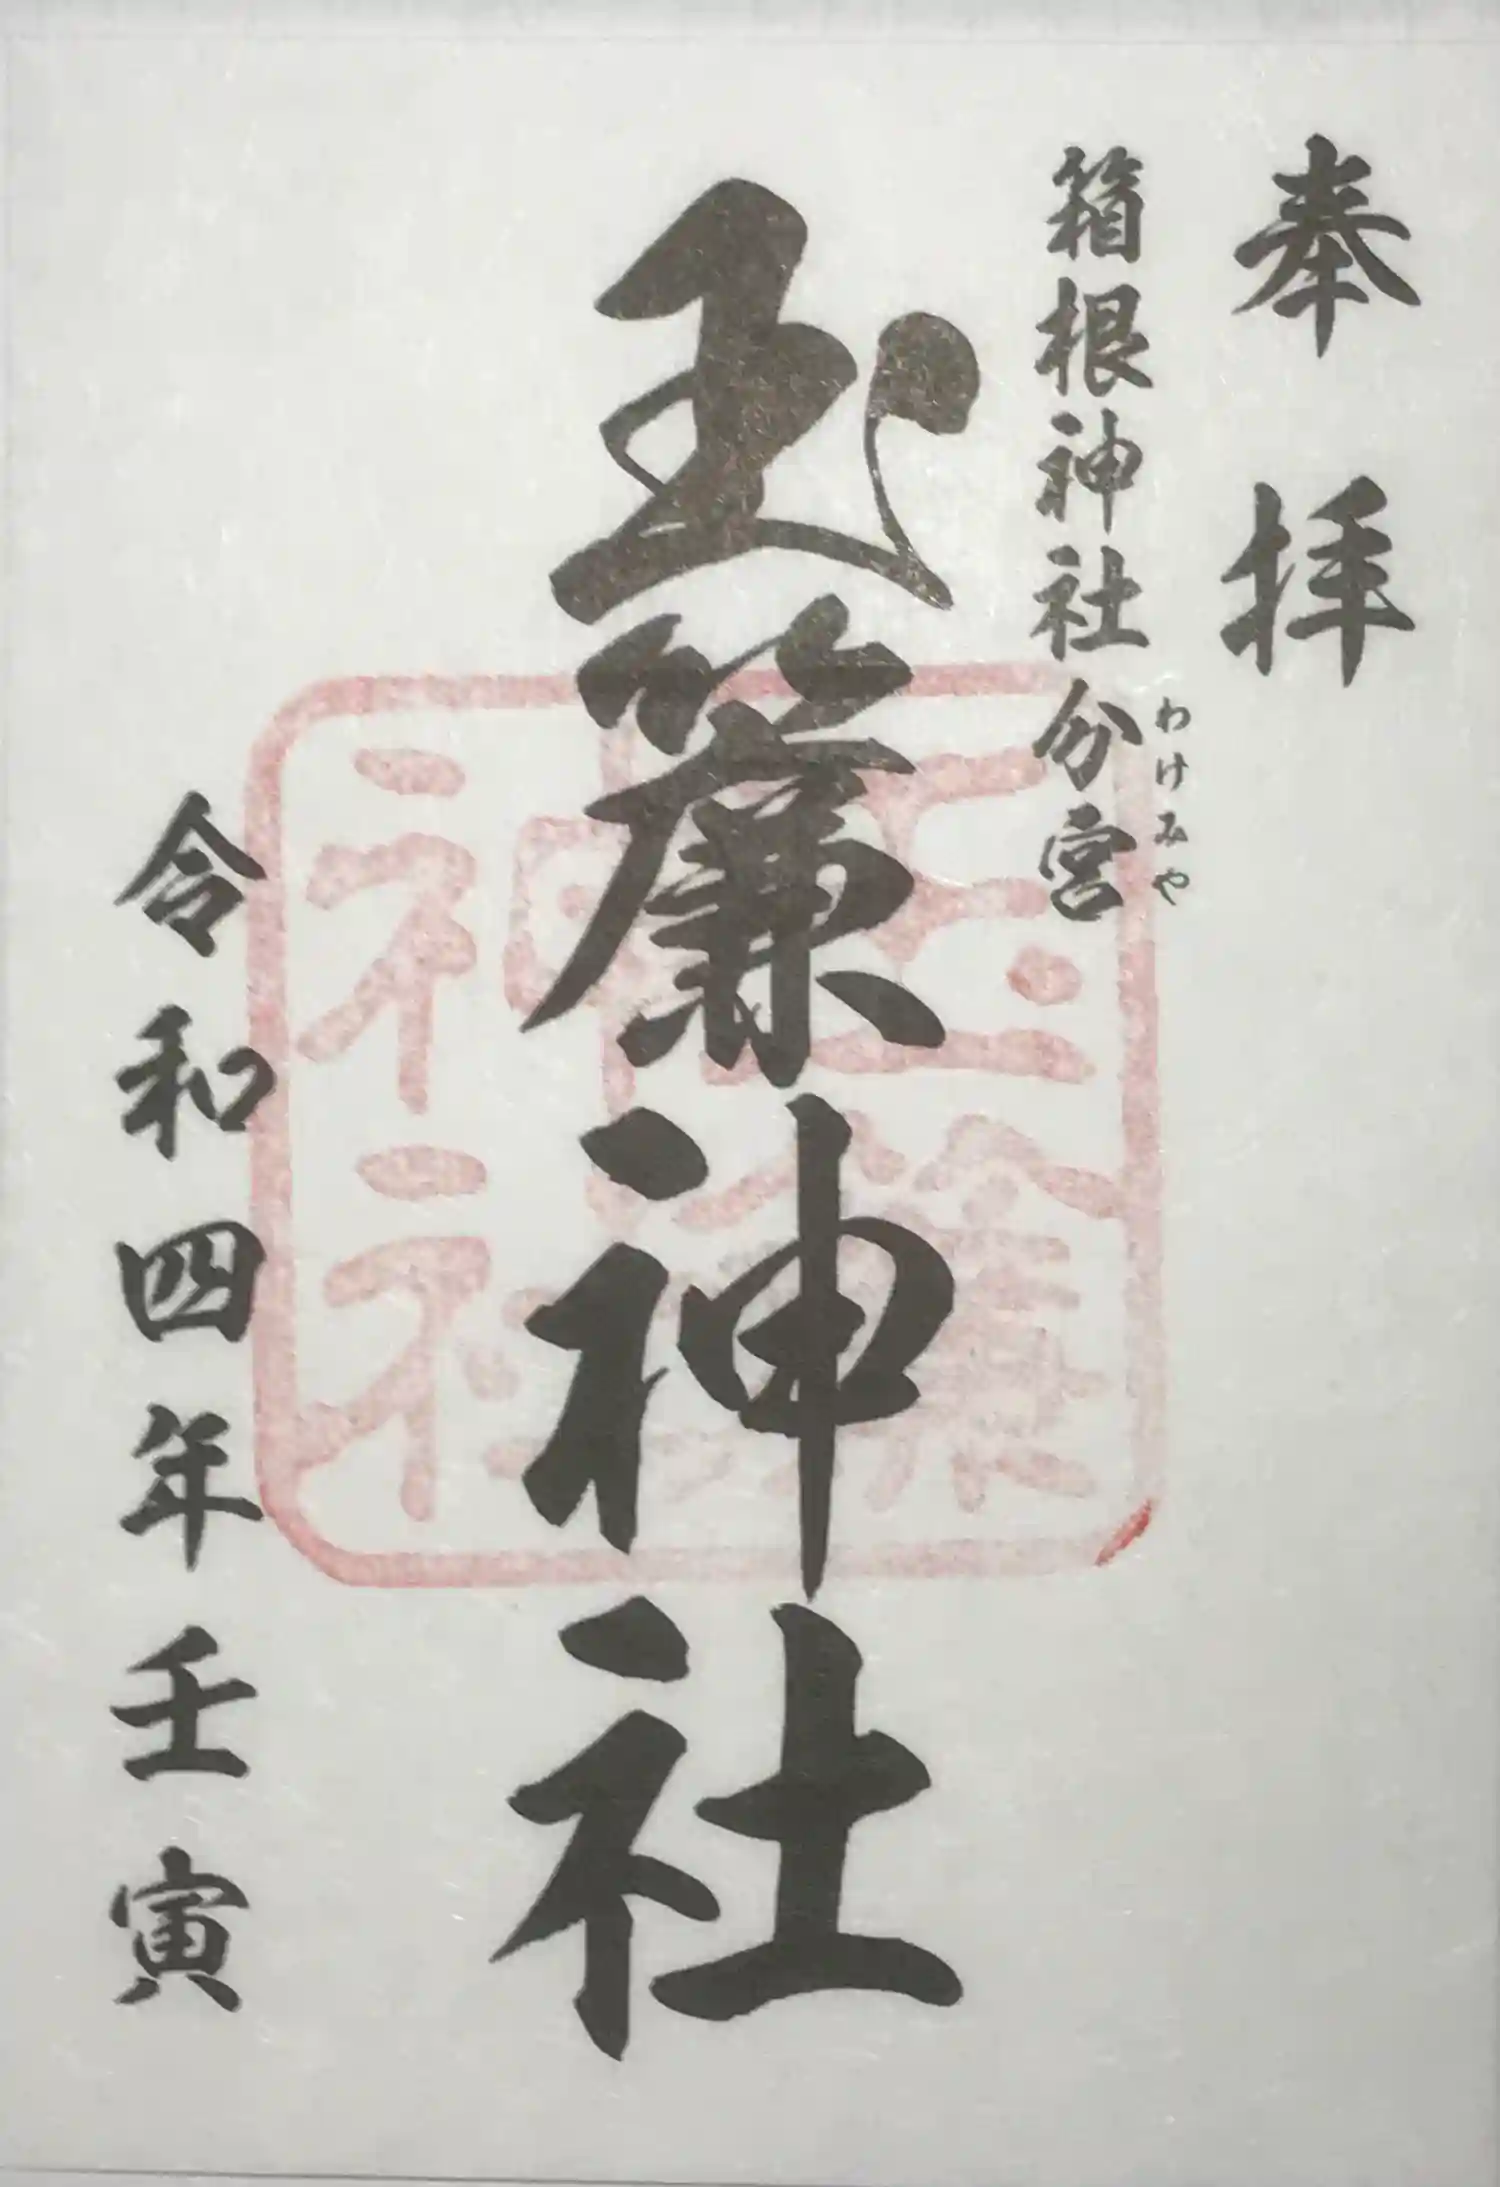 奉拝
箱根神社分宮
わけみや
玉簾神社
令和四年壬寅
玉簾
神社